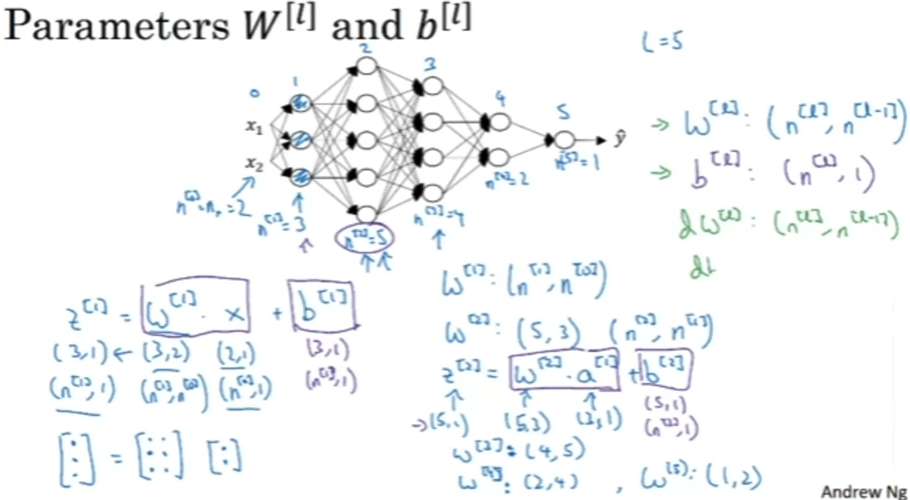 Parameters W^[l] and b^[l]
L=5
0 1 2 3 4 5
x₁
x₂
ŷ
n^[0]=nₓ=2
n^[1]=3
n^[2]=5
n^[3]=4
n^[4]=2
n^[5]=1
→ W^[l]: (n^[l], n^[l-1])
→ b^[l]: (n^[l], 1)
dW^[l]: (n^[l], n^[l-1])
z^[1] = W^[1] · x + b^[1]
(3,1) ← (3,2) (2,1) (3,1)
(n^[1],1) (n^[1],n^[0]) (n^[0],1) (n^[1],1)
[:] = [::] [:]
W^[1]: (n^[1], n^[0])
W^[2]: (5,3) (n^[2], n^[1])
z^[2] = W^[2] · a^[1] + b^[2]
→(5,1) (5,3) (3,1) (5,1)
(n^[2],1)
W^[3]: (4,5)
W^[4]: (2,4) , W^[5]: (1,2)
Andrew Ng